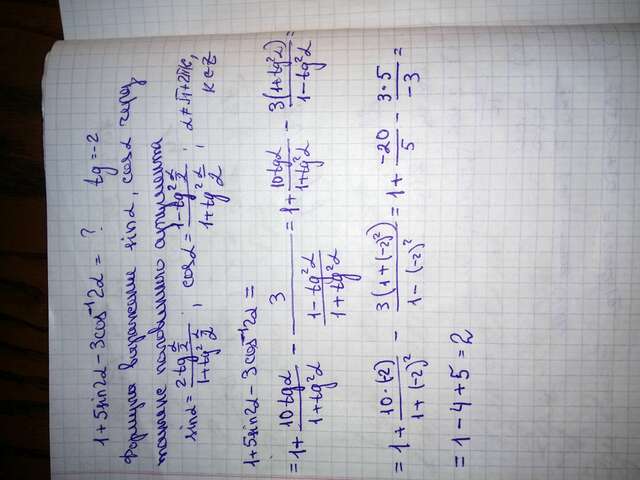 1+5sin2α-3cos⁻¹2α = ? tg=-2
Формула выражение sinα, cosα через
тангенс половинного аргумента
sinα = 2tg α/2 / 1+tg² α/2 , cosα = 1-tg² α/2 / 1+tg² α/2 ; α≠π+2πk, k∈z
1+5sin2α-3cos⁻¹2α =
= 1+ 10tgα / 1+tg²α - 3 / (1-tg²α / 1+tg²α) = 1+ 10tgα / 1+tg²α - 3(1+tg²α) / 1-tg²α =
= 1+ 10·(-2) / 1+(-2)² - 3(1+(-2)²) / 1-(-2)² = 1+ -20 / 5 - 3·5 / -3 =
= 1-4+5=2